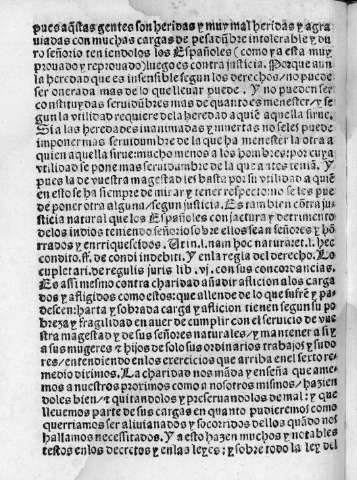 pues aq̃stas gentes son heridas y muy mal heridas y agra
uiadas con muchas cargas de pesadũbre intolerable y du
ro señorio teniendolos los Españoles (como ya esta muy
prouado y reprouado) luego es contra justicia. Porque aun
la heredad que es insensible segun los derechos / no puede
ser onerada mas de lo que lleuar puede. Y no pueden ser
constituydas seruidũbres mas de quanto es menester / y se
gun la vtilidad requiere dela heredad a quiẽ aquella sirue.
Si a las heredades inanimadas y muertas no seles puede
imponer mas seruidumbre de la que ha menester la otra a
quien aquella sirue: mucho menos a los hombres: por cuya
vtilidad se pone mas seruidumbre de la que antes teniã. Y
pues la de vuestra magestad es basta por su vtilidad a quiẽ
en esto se ha siempre de mirar y tener respecto: no se les pue
de poner otra alguna / segun justicia. Es tambien cõtra ju-
sticia natural que los Españoles con jactura y detrimento
delos indios teniendo señorio sobre ellos sean señores y hõ
rrados y enrriquescidos. Ut in.l. nam hoc natura et.l. hec
condito.ff. de condi indebiti. Y enla regla del derecho. Lo
cupletari. de regulis juris lib. vj. con sus concordancias.
Es assi mesmo contra charidad añadir afliction alos carga
dos y afligidos como estos: que allende de lo que sufrẽ y pa-
descen: harta y sobrada carga y afliction tienen segun su po
breza y fragilidad en auer de cumplir con el seruicio de vue
stra magestad y de sus señores naturales / y mantener a si y
a sus mugeres e hijos de solo sus ordinarios trabajos y sudo
res / entendiendo enlos exercicios que arriba enel sexto re-
medio diximos. La charidad nos mãda y enseña que ame-
mos a nuestros proximos como a nosotros mismos / hazien
doles bien / e quitandolos y preseruandolos de mal: y que
lleuemos parte de sus cargas en quanto pudieremos como
querriamos ser aliuianados y socorridos dellos quãdo nos
hallamos necessitados. Y a esto hazen muchos y notables
testos enlos decretos y enlas leyes: y sobre todo la ley del